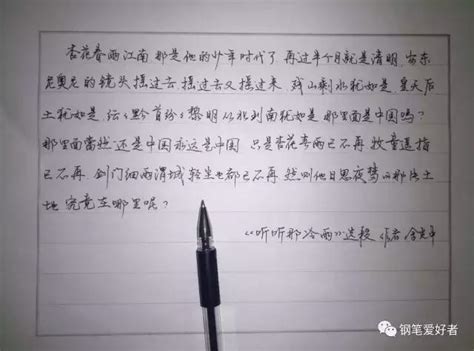 杏花春雨江南 那是他的少年时代了 再过半个月就是清明 安东
尼奥尼的镜头摇过去 摇过去又摇过来 残山剩水犹如是 皇天后
土犹如是 纭纭黔首纷纷黎明从北到南犹如是 那里面是中国吗?
那里面当然还是中国永远是中国 只是杏花春雨已不再 牧童遥指
已不再 剑门细雨渭城轻尘也都已不再 然则他日思夜梦的那片土
地 究竟在哪里呢?
《听听那冷雨》选段 作者 余光中
钢笔爱好者